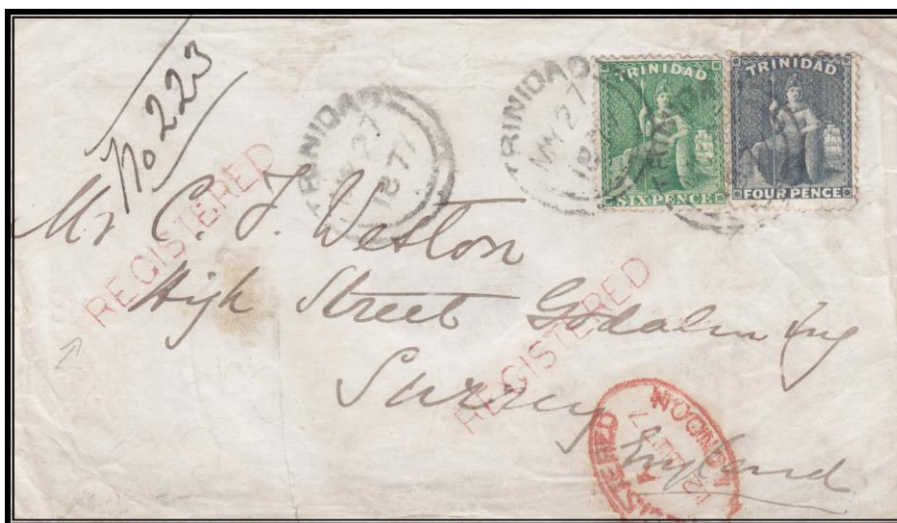 No 223
TRINIDAD
MY 27
1877
TRINIDAD
MY 27
TRINIDAD
SIX PENCE
TRINIDAD
FOUR PENCE
REGISTERED
Mr C. J. Weston
High Street Godalming
REGISTERED
Surrey
England
REGISTERED
LONDON
A